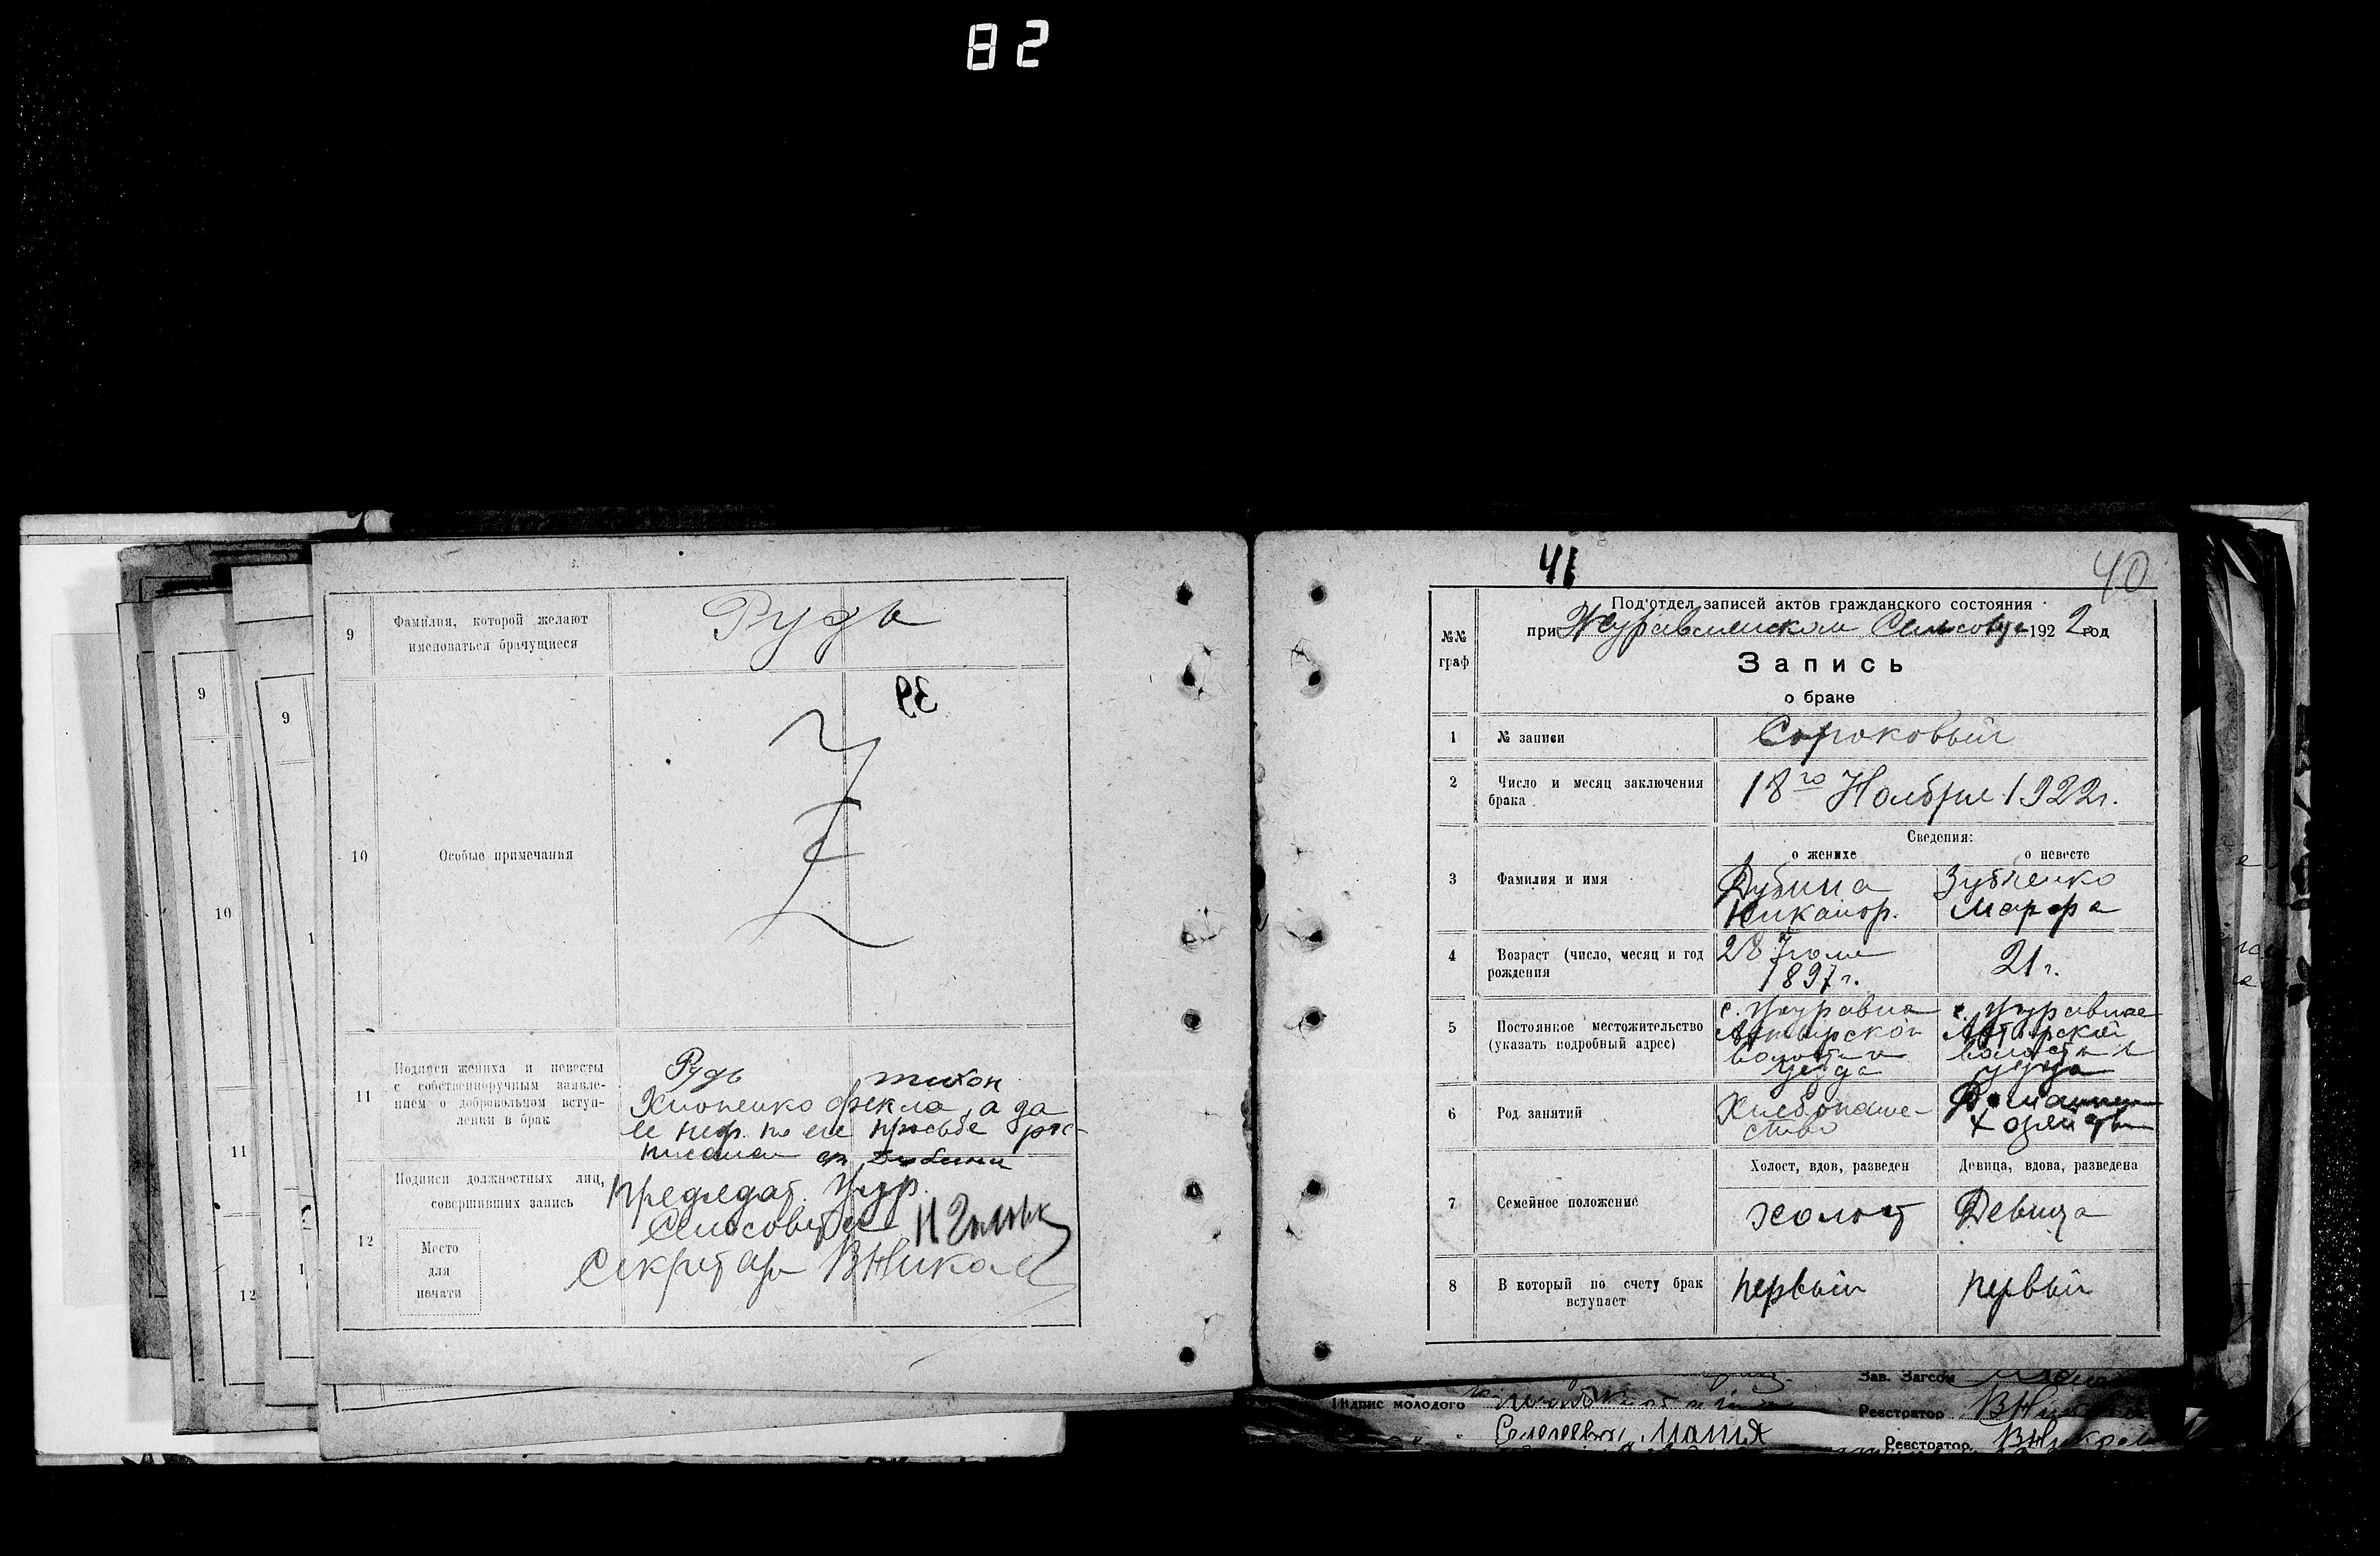 82
9
Фамилия, которой желают
именоваться брачущиеся
Рудь
39
10
Особые примечания
11
Подписи жениха и невесты
с собственноручным заявле-
нием о добровольном вступ-
лении в брак
Рудь тихон
Хионенко Фекла, а за
ее негр. по ее просьбе рос-
писался
12
Подписи должностных лиц,
совершивших запись
Место
для
печати
Председат. Жур.
Сельсовета
Секретарь
9
10
11
12
9
41
40
№№
граф
Под'отдел записей актов гражданского состояния
при Журавлинском Сельсовете 1922 год
Запись
о браке
1
№ записи
Сороковый
2
Число и месяц заключения
брака
18го Ноября 1922г.
Сведения:
о женихе
о невесте
3
Фамилия и имя
Дубина
Никанор.
Зубченко
Марфа
4
Возраст (число, месяц и год
рождения
28 Июля
1897г.
21 г.
5
Постоянное местожительство
(указать подробный адрес)
с. Журавна
Ахтырской
волости и
уезда
с. Журавное
Ахтырской
волости и
уезда
6
Род занятий
Хлебопаше-
ство
7
Семейное положение
Холост, вдов, разведен
Девица, вдова, разведена
холост
Девица
8
В который по счету брак
вступает
первый
первый
Підпис молодого
Зав. Загсом
Реєстратор
Реєстратор